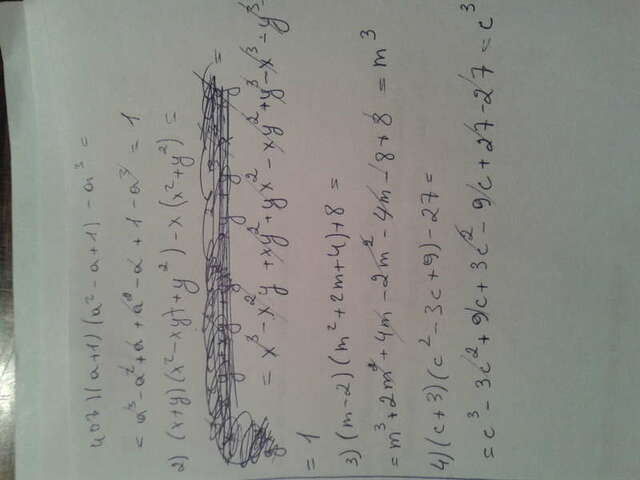 403) (a+1)(a²-a+1)-a³=
=a³-a²+a+a²-a+1-a³=1
2) (x+y)(x²-xy+y²)-x(x²+y²)=
=x³-x²y+xy²+yx²-xy²+y³-x³-y³
=1
3) (m-2)(m²+2m+4)+8=
=m³+2m²+4m-2m²-4m-8+8=m³
4) (c+3)(c²-3c+9)-27=
=c³-3c²+9c+3c²-9c+27-27=c³